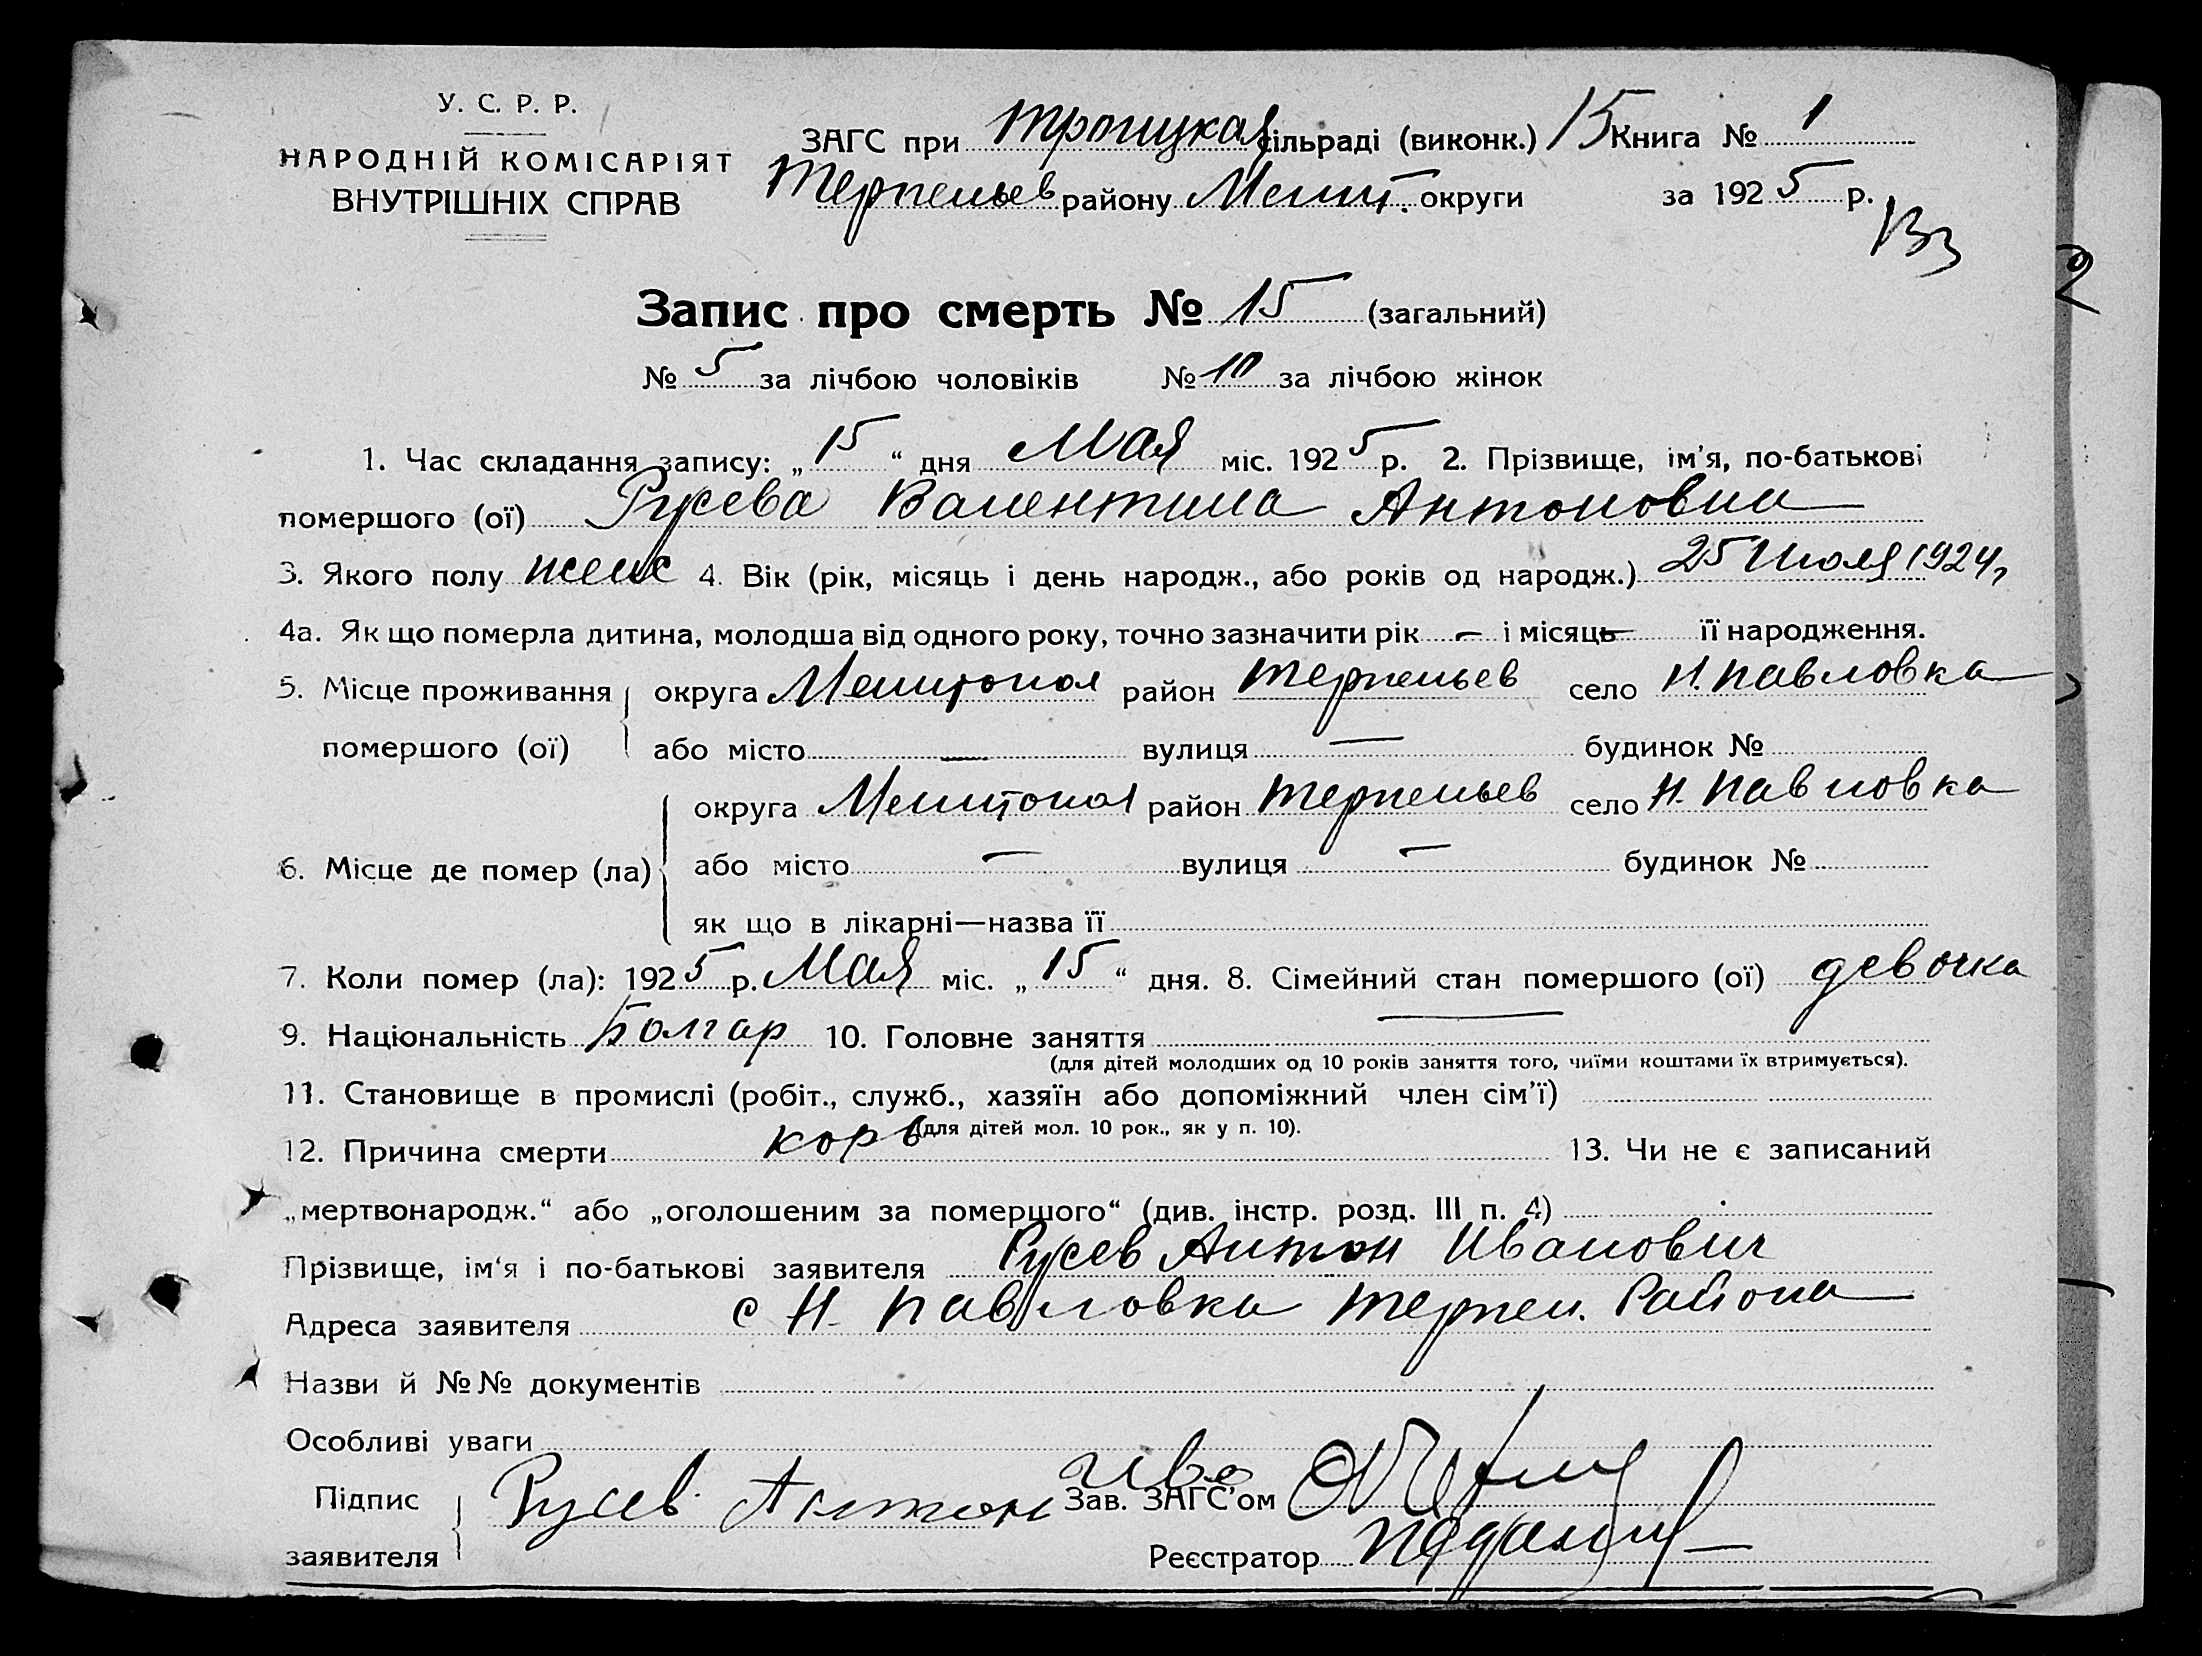 У. С. Р. Р.
НАРОДНІЙ КОМІСАРІЯТ
ВНУТРІШНІХ СПРАВ
ЗАГС при Троицкая сільраді (виконк.) 15 Книга № 1
Терпеньев району Мелит. округи за 1925 р.
133
2
Запис про смерть № 15 (загальний)
№ 5 за лічбою чоловіків № 10 за лічбою жінок
1. Час складання запису: „15“ дня Мая міс. 1925 р. 2. Прізвище, ім'я, по-батькові
помершого (ої) Русева Валентина Антоновна
3. Якого полу женс 4. Вік (рік, місяць і день народж., або років од народж.) 25 Июля 1924,
4а. Як що померла дитина, молодша від одного року, точно зазначити рік — і місяць — її народження.
5. Місце проживання округа Мелитопол район Терпеньев село Н. Павловка
помершого (ої) або місто — вулиця — будинок №
округа Мелитопол район Терпеньев село Н. Павловка
6. Місце де помер (ла) або місто — вулиця — будинок №
як що в лікарні—назва її
7. Коли помер (ла): 1925 р. Мая міс. „15“ дня. 8. Сімейний стан помершого (ої) девочка
9. Національність Болгар 10. Головне заняття —
(для дітей молодших од 10 років заняття того, чиїми коштами їх втримується).
11. Становище в промислі (робіт., служб., хазяїн або допоміжний член сім'ї)
(для дітей мол. 10 рок., як у п. 10).
12. Причина смерти корь 13. Чи не є записаний
„мертвонародж.“ або „оголошеним за помершого“ (див. інстр. розд. III п. 4)
Прізвище, ім'я і по-батькові заявителя Русев Антон Иванович
Адреса заявителя с Н. Павловка Терпен. Района
Назви й №№ документів
Особливі уваги
Підпис заявителя Русев Антон Ива
Зав. ЗАГС'ом
Реєстратор